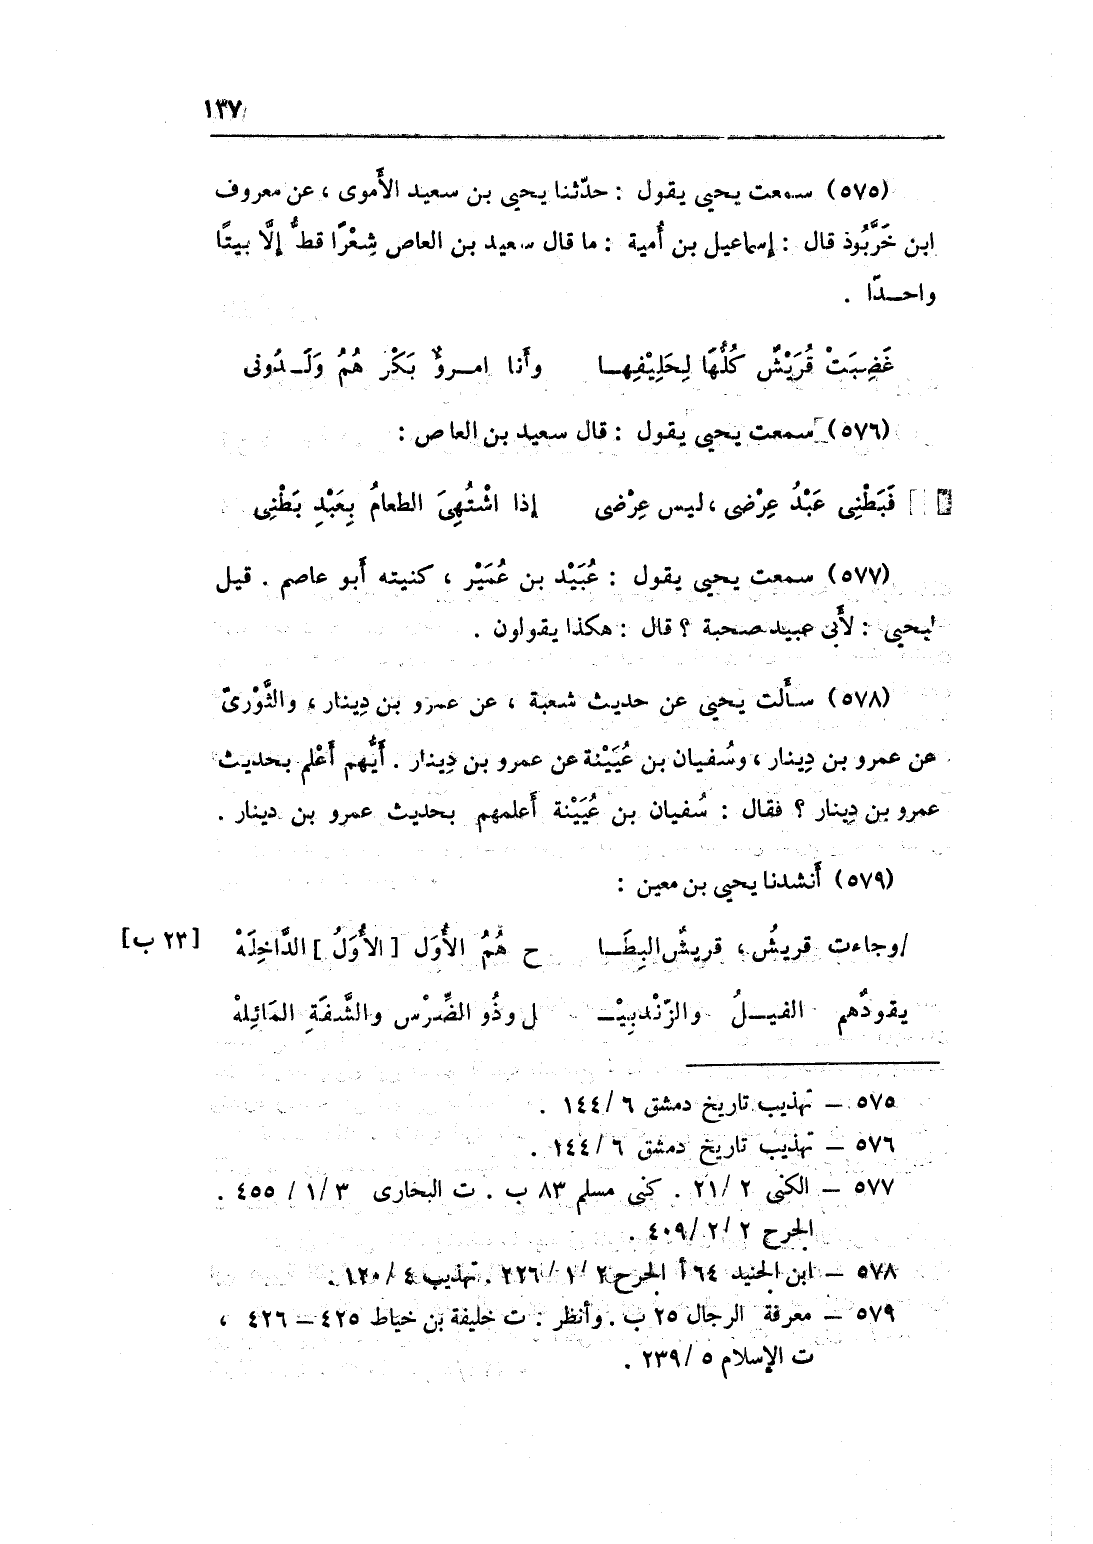 ١٣٧
(٥٧٥) سمعت يحيى يقول : حدّثنا يحيى بن سعيد الأَموى ، عن معروف
ابن خَرَّبُوذ قال : إسماعيل بن أُمية : ما قال سعيد بن العاص شِعْرًا قطُّ إلَّا بيتًا
واحــدًا .
غَضِبَتْ قُرَيْشٌ كُلُّهَا لِحَلِيْفِهــا وأَنا امــروٌ بَكْر هُمُ وَلَــدُونى
(٥٧٦) سمعت يحيى يقول : قال سعيد بن العاص :
فَبَطْنِى عَبْدُ عِرْضى ، ليس عِرْضى إذا اشْتُهِىَ الطعامُ بِعَبْدِ بَطْنِى
(٥٧٧) سمعت يحيى يقول : عُبَيْد بن عُمَيْر ، كنيته أَبو عاصم . قيل
ليحيى : لأَبى عبيد صحبة ؟ قال : هكذا يقولون .
(٥٧٨) سأَلت يحيى عن حديث شعبة ، عن عمرو بن دِينار ، والثَّوْرىّ
عن عمرو بن دِينار ، وسُفيان بن عُيَيْنة عن عمرو بن دِينار . أَيُّهم أَعْلم بحديث
عمرو بن دِينار ؟ فقال : سُفيان بن عُيَيْنة أَعلمهم بحديث عمرو بن دينار .
(٥٧٩) أَنشدنا يحيى بن معين :
/وجاءت قريشُ ، قريشُ البِطَــا ح هُمُ الأُوَل [ الأُوَلُ ] الدَّاخِلَهْ [ ٢٣ ب ]
يقودُهم الفيــلُ والزّنْدبِيْــ ل وذُو الضِّرْس والشَّفَةِ المَائِلهْ
٥٧٥ – تهذيب تاريخ دمشق ٦ /١٤٤ .
٥٧٦ – تهذيب تاريخ دمشق ٦ /١٤٤ .
٥٧٧ – الكنى ٢ /٢١ . كنى مسلم ٨٣ ب . ت البخارى ٣ /١ / ٤٥٥ .
الجرح ٢ /٢ /٤٠٩ .
٥٧٨ – ابن الجنيد ٦٤ أ الجرح ٢ /١ /٢٢٦ . تهذيب ٤ /١٢٠ .
٥٧٩ – معرفة الرجال ٢٥ ب . وأنظر : ت خليفة بن خياط ٤٢٥ – ٤٢٦ ،
ت الإسلام ٥ /٢٣٩ .